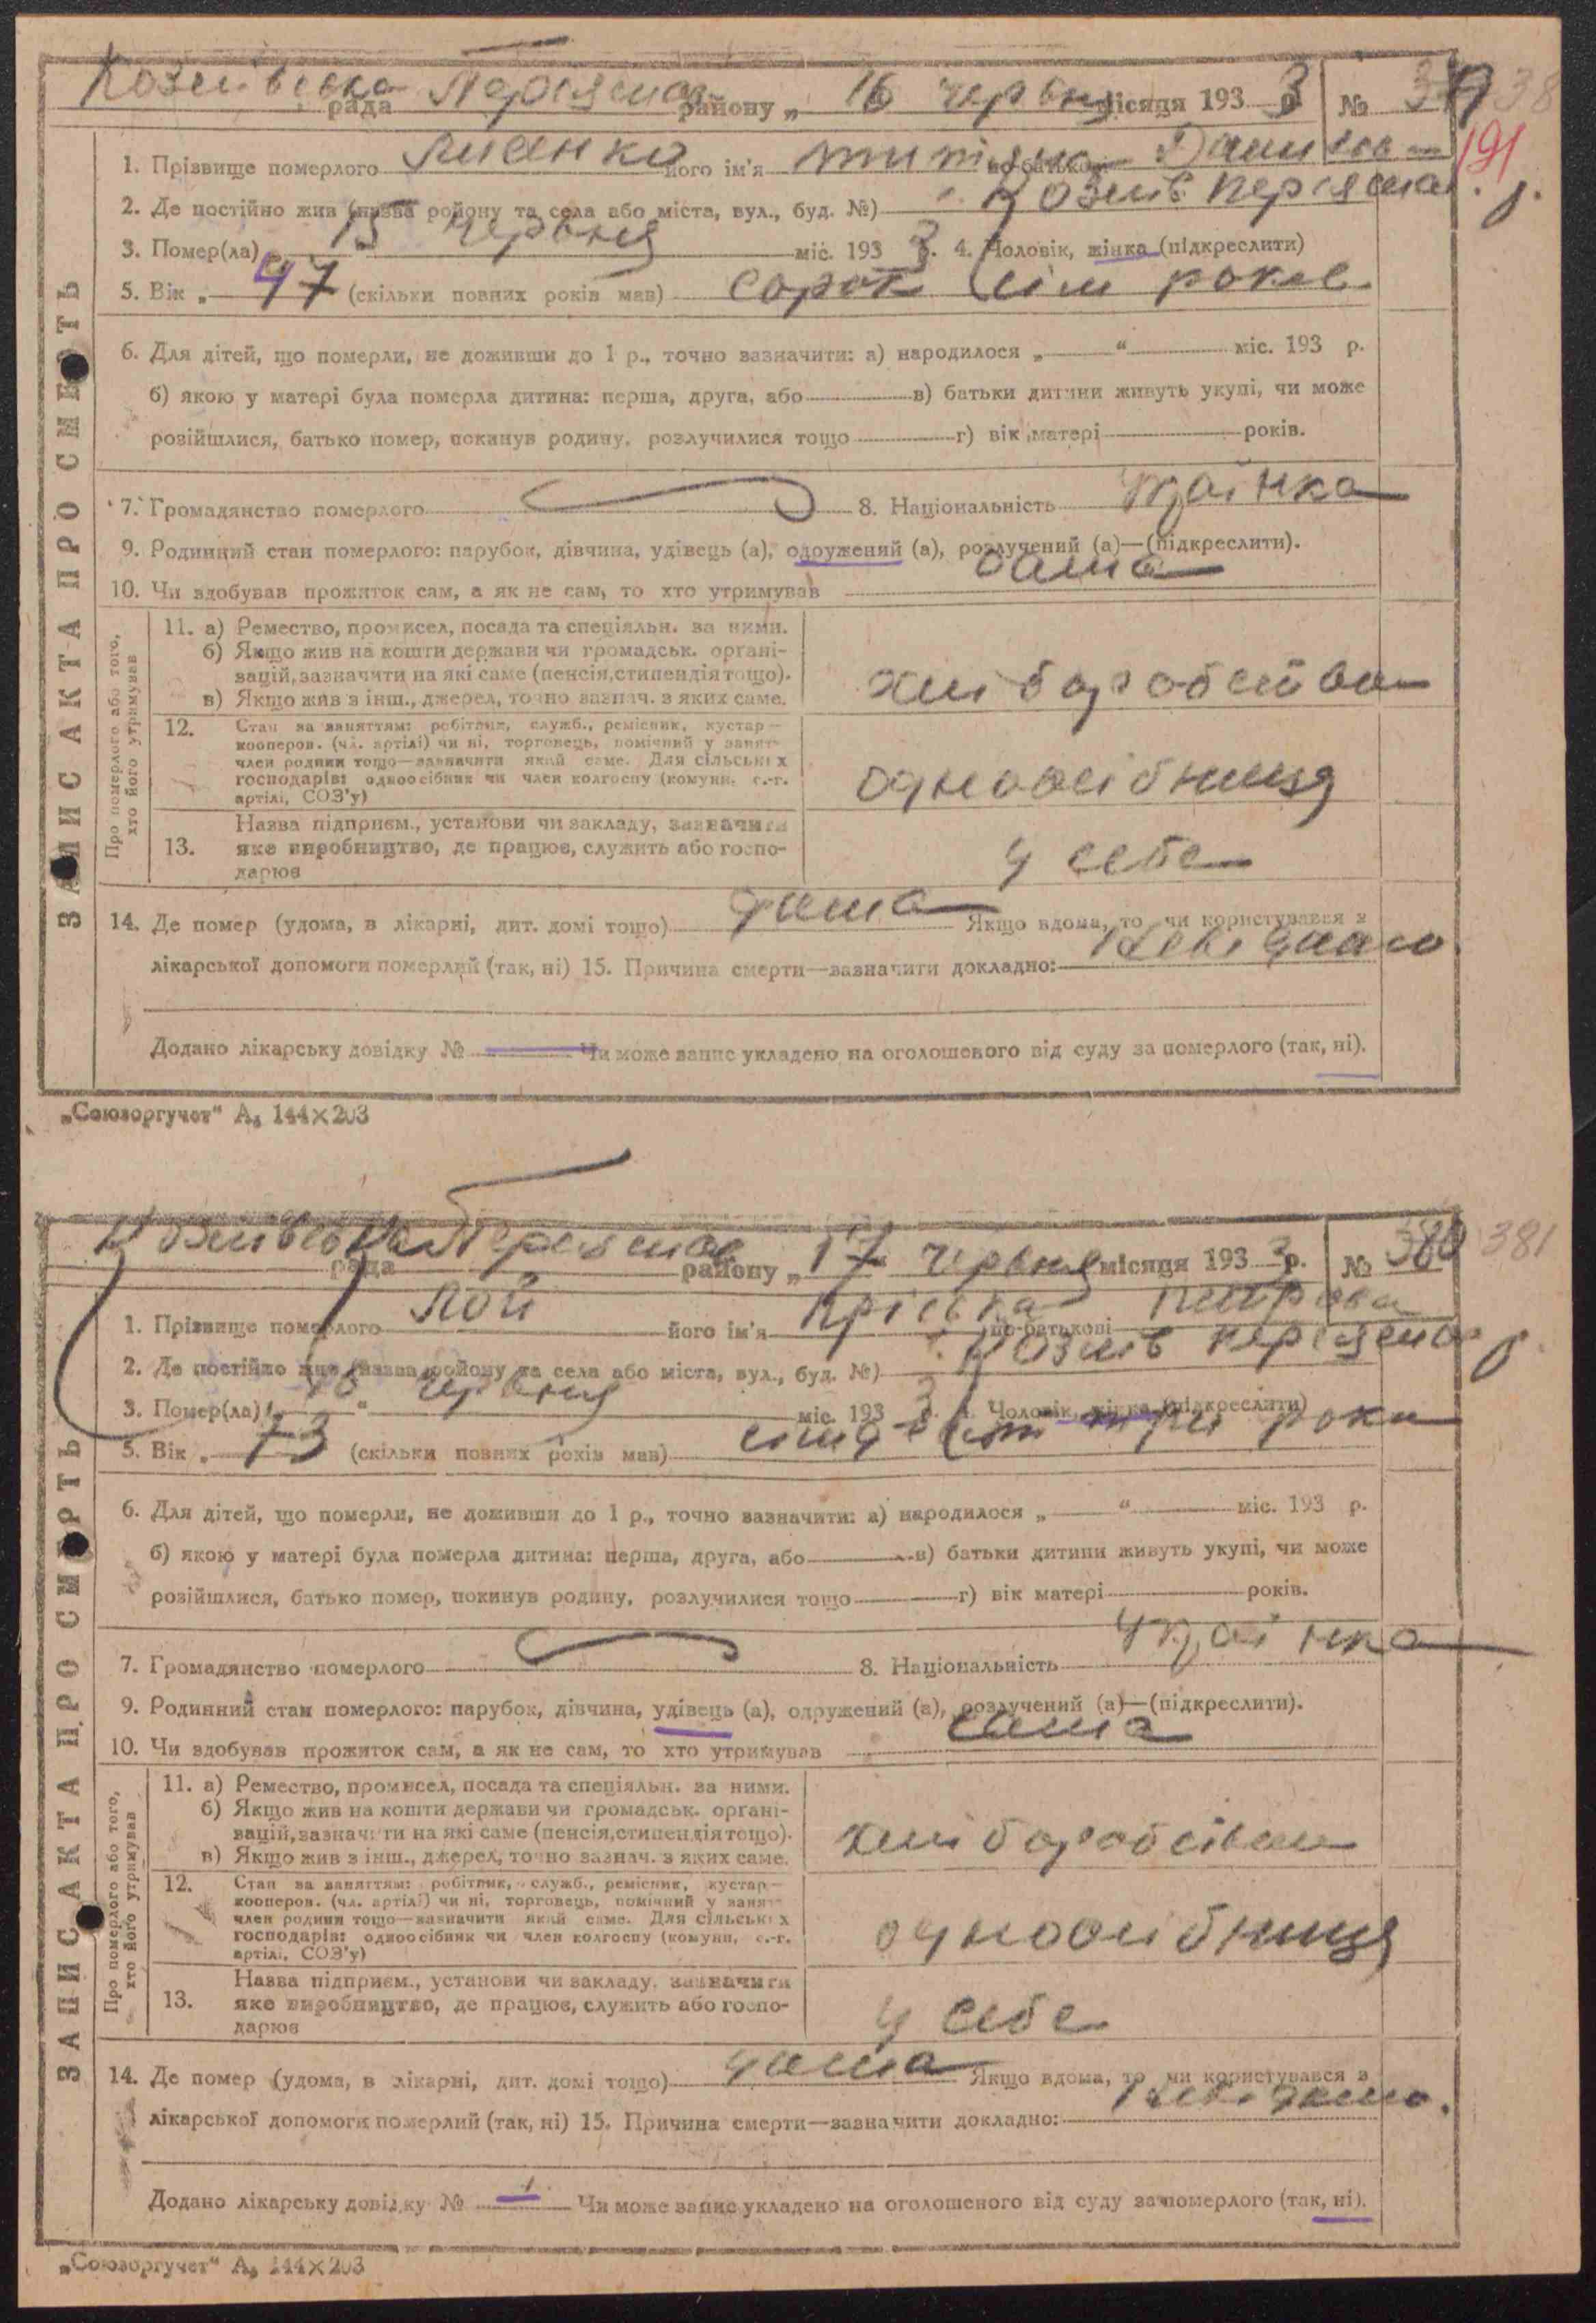 Козлівська рада Переяслав району „ 16 червня місяця 1933 р. № 379 38
191
1. Прізвище померлого Лисенко його ім'я Титяна по-батькові Данилов
2. Де постійно жив (назва району та села або міста, вул., буд. №) с. Козлів Переяслав. р.
3. Помер(ла) „ 15 червня міс. 1933 р. 4. Чоловік, жінка (підкреслити)
5. Вік „ 47 (скільки повних років мав) сорок сім років
6. Для дітей, що померли, не доживши до 1 р., точно зазначити: а) народилося „ “ міс. 193 р.
б) якою у матері була померла дитина: перша, друга, або в) батьки дитини живуть укупі, чи може
розійшлися, батько помер, покинув родину, розлучилися тощо г) вік матері років.
7. Громадянство померлого 8. Національність Українка
9. Родинний стан померлого: парубок, дівчина, удівець (а), одружений (а), розлучений (а)—(підкреслити).
10. Чи здобував прожиток сам, а як не сам, то хто утримував сама
ЗАПИС АКТА ПРО СМЕРТЬ
Про померлого або того, хто його утримував
11. а) Ремество, промисел, посада та спеціяльн. за ними.
б) Якщо жив на кошти держави чи громадськ. органі-
зацій, зазначити на які саме (пенсія, стипендія тощо).
в) Якщо жив з інш., джерел, точно зазнач. з яких саме.
хліборобство
12. Стан за заняттям: робітник, служб., ремісник, кустар—
кооперов. (чл. артілі) чи ні, торговець, помічний у занят-
член родини тощо—зазначити який саме. Для сільських
господарів: одноосібник чи член колгоспу (комуни, с.-г.
артілі, СОЗ'у)
одноосібниця
13. Назва підприєм., установи чи закладу, зазначити
яке виробництво, де працює, служить або госпо-
дарює
у себе
14. Де помер (удома, в лікарні, дит. домі тощо) дома Якщо вдома, то чи користувався з
лікарської допомоги померлий (так, ні) 15. Причина смерти—зазначити докладно: Невідомо.
Додано лікарську довідку № Чи може запис укладено на оголошеного від суду за померлого (так, ні).
„Союзоргучет“ А5 144×203
Козлівська рада Переяслав району „ 17 червня місяця 1933 р. № 380 381
1. Прізвище померлого Лой його ім'я Пріська по-батькові Петрова
2. Де постійно жив (назва району та села або міста, вул., буд. №) с. Козлів Переяслав р.
3. Помер(ла) „ 16 “ червня міс. 1933 р. 4. Чоловік, жінка (підкреслити)
5. Вік „ 73 (скільки повних років мав) сімдесят три роки
6. Для дітей, що померли, не доживши до 1 р., точно зазначити: а) народилося „ “ міс. 193 р.
б) якою у матері була померла дитина: перша, друга, або в) батьки дитини живуть укупі, чи може
розійшлися, батько помер, покинув родину, розлучилися тощо г) вік матері років.
7. Громадянство померлого 8. Національність Українка
9. Родинний стан померлого: парубок, дівчина, удівець (а), одружений (а), розлучений (а)—(підкреслити).
10. Чи здобував прожиток сам, а як не сам, то хто утримував сама
ЗАПИС АКТА ПРО СМЕРТЬ
Про померлого або того, хто його утримував
11. а) Ремество, промисел, посада та спеціяльн. за ними.
б) Якщо жив на кошти держави чи громадськ. органі-
зацій, зазначити на які саме (пенсія, стипендія тощо).
в) Якщо жив з інш., джерел, точно зазнач. з яких саме.
хліборобство
12. Стан за заняттям: робітник, служб., ремісник, кустар—
кооперов. (чл. артілі) чи ні, торговець, помічний у занят-
член родини тощо—зазначити який саме. Для сільських
господарів: одноосібник чи член колгоспу (комуни, с.-г.
артілі, СОЗ'у)
одноосібниця
13. Назва підприєм., установи чи закладу, зазначити
яке виробництво, де працює, служить або госпо-
дарює
у себе
14. Де помер (удома, в лікарні, дит. домі тощо) дома Якщо вдома, то чи користувався з
лікарської допомоги померлий (так, ні) 15. Причина смерти—зазначити докладно: Невідомо.
Додано лікарську довідку № Чи може запис укладено на оголошеного від суду за померлого (так, ні).
„Союзоргучет“ А5 144×203